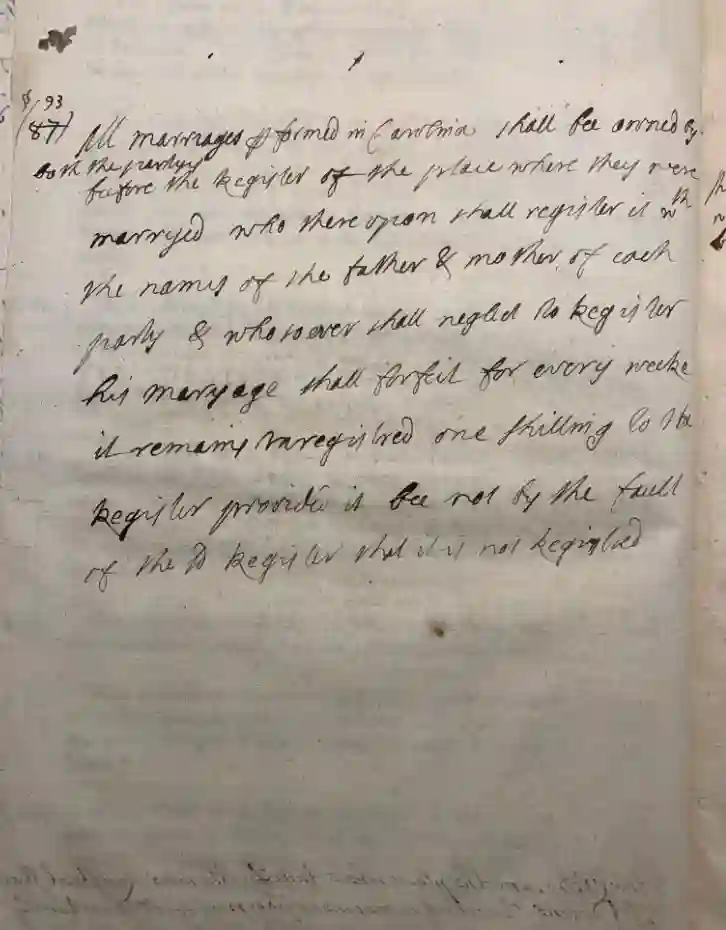 § 93
(87) All marriages pformed in Carolina shall bee owned by
both the partys
before the Register of the place where they were
marryed who thereupon shall register it wth
the names of the father & mother of each
party & whosoever shall neglect to Register
his maryage shall forfeit for every weeke
it remains unregistred one shilling to the
Register provided it bee not by the fault
of the sd Register that it is not Registred